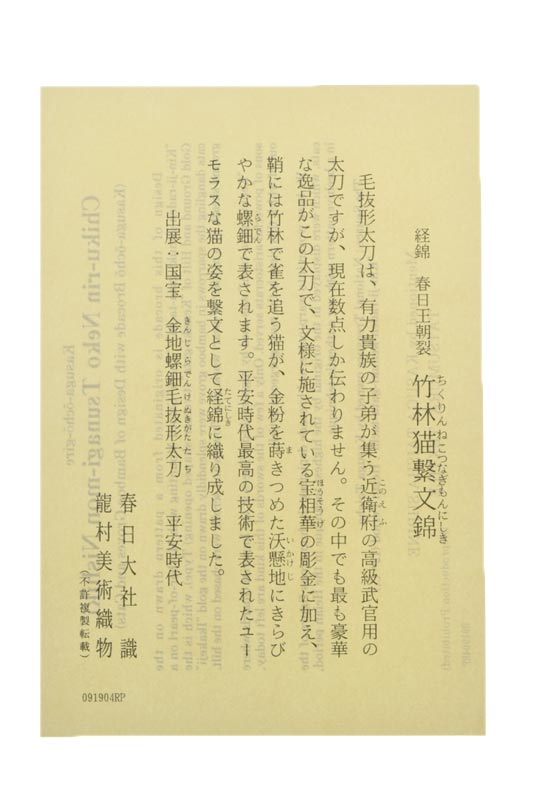 経錦　春日王朝裂　竹林猫繋文錦
ちくりんねこつなぎもんにしき
毛抜形太刀は、有力貴族の子弟が集う近衛府の高級武官用の
このえふ
太刀ですが、現在数点しか伝わりません。その中でも最も豪華
な逸品がこの太刀で、文様に施されている宝相華の彫金に加え、
ほうそうげ
鞘には竹林で雀を追う猫が、金粉を蒔きつめた沃懸地にきらび
ま　いかけじ
やかな螺鈿で表されます。平安時代最高の技術で表されたユー
らでん
モラスな猫の姿を繋文として経錦に織り成しました。
たてにしき
出展：国宝　金地螺鈿毛抜形太刀　平安時代
きんじらでんけぬきがたたち
春日大社　識
龍村美術織物
（不許複製転載）
091904RP